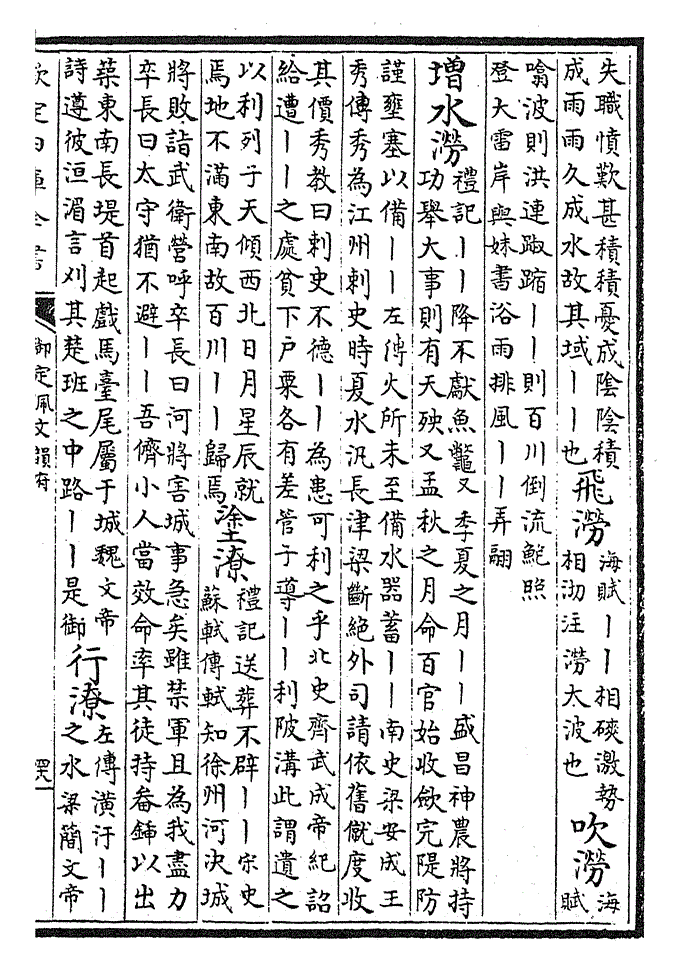 失職憤歎甚積積憂成陰陰積
成雨雨久成水故其域丨丨也
飛澇
海賦丨丨相磢激勢
相沏注澇大波也
吹澇
海
賦
噏波則洪漣踧蹜丨丨則百川倒流鮑照
登大雷岸與妹書浴雨排風丨丨弄翮
增水澇
禮記丨丨降不獻魚鼈又季夏之月丨丨盛昌神農將持
功舉大事則有天殃又孟秋之月命百官始收歛完隄防
謹壅塞以備丨丨左傳火所未至備水器蓄丨丨南史梁安成王
秀傳秀為江州刺史時夏水汎長津梁斷絕外司請依舊僦度收
其價秀教曰刺史不德丨丨為患可利之乎北史齊武成帝紀詔
給遭丨丨之處貧下戶粟各有差管子導丨丨利陂溝此謂遺之
以利列子天傾西北日月星辰就
焉地不滿東南故百川丨丨歸焉
塗潦
禮記送葬不辟丨丨宋史
蘇軾傳軾知徐州河決城
將敗詣武衛營呼卒長曰河將害城事急矣雖禁軍且為我盡力
卒長曰太守猶不避丨丨吾儕小人當效命率其徒持畚鍤以出
築東南長堤首起戲馬臺尾屬于城魏文帝
詩遵彼洹湄言刈其楚班之中路丨丨是御
行潦
左傳潢汙丨丨
之水梁簡文帝
欽定四庫全書
御定佩文韻府